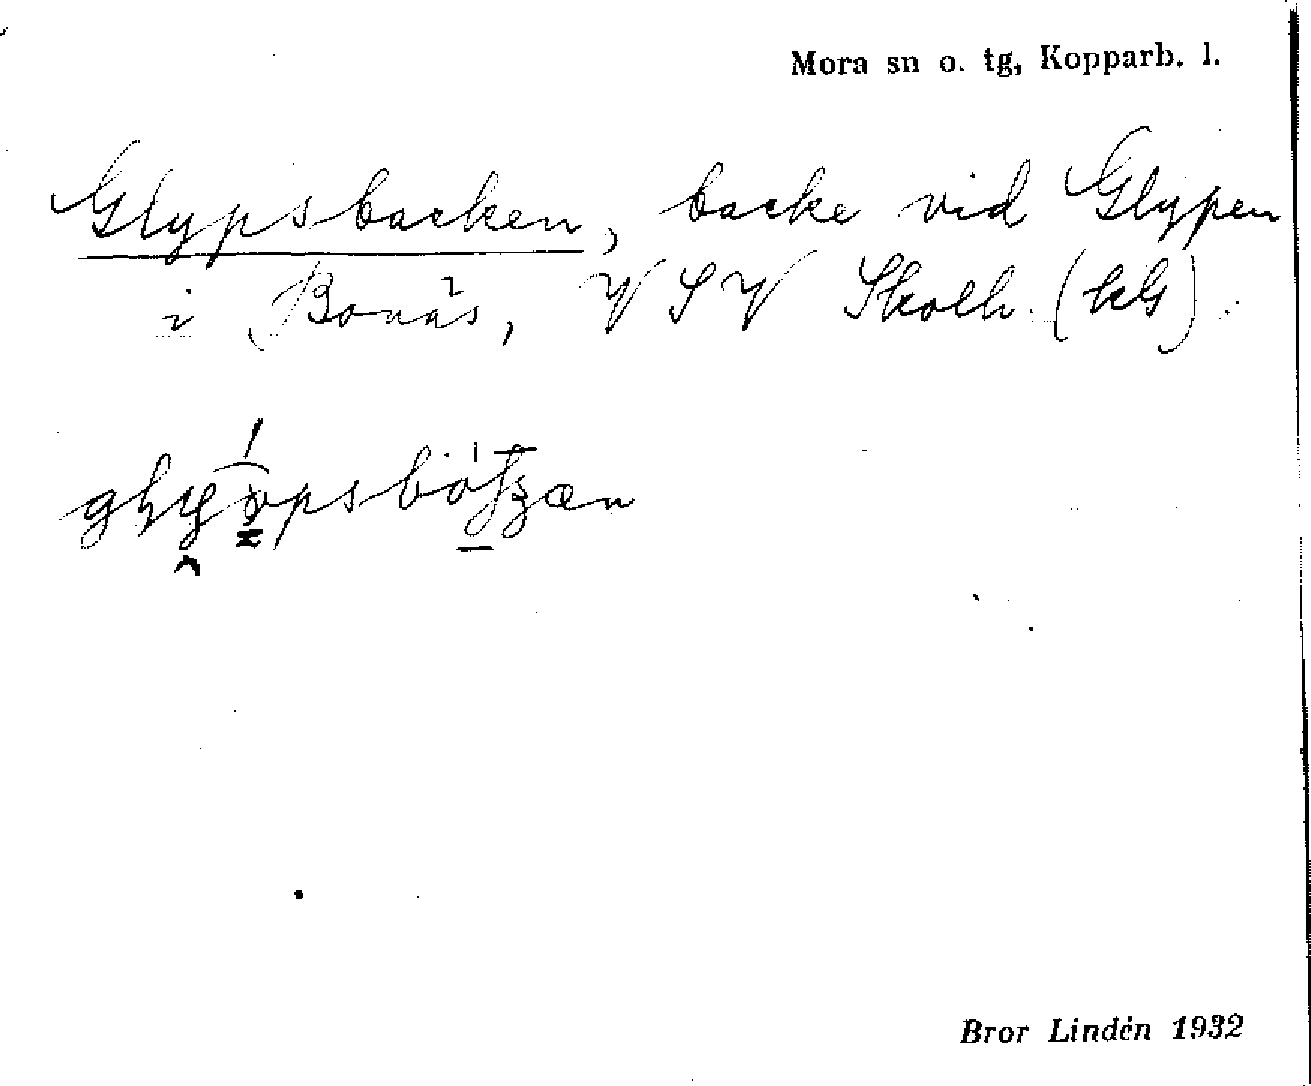 Mora sn o. tg, Kopparb. l.
Glypsbacken, backe vid Glypen
i Bonäs, VSV Skolh. (kG).
Bror Lindén 1932